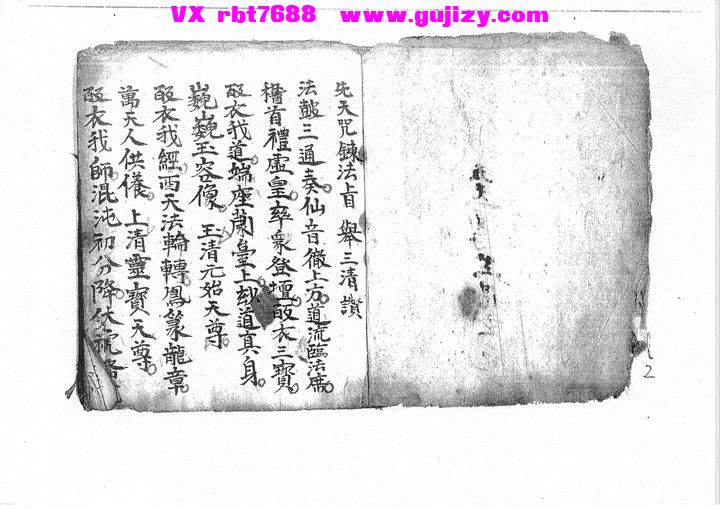 VX rbt7688 www.gujizy.com
先天咒鍊法旨 舉三清讚
法皷三通奏仙音徹上方道流臨法席
稽首禮虛皇率衆登壇皈衣三寶
皈衣我道端座蘭臺上玅道真身
巍巍玉容像 玉清元始天尊
皈衣我經西天法輪轉鳳篆龍章
萬天人供儀 上清靈寶天尊
皈衣我師混沌初分降伏
2